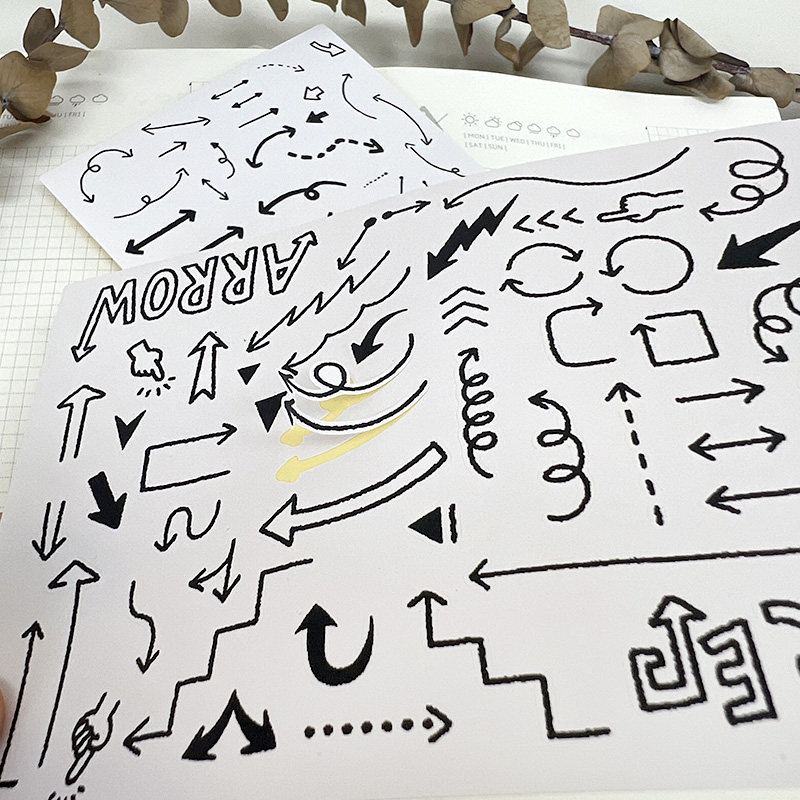 WED | THU | FRI |
| MON | TUE | WED | THU | FRI |
| SAT | SUN |
ARROW